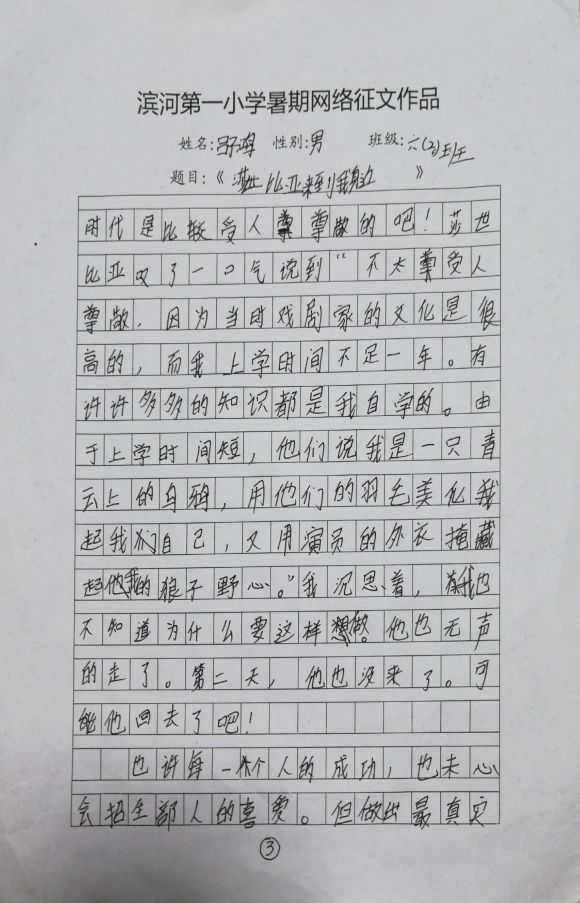 滨河第一小学暑期网络征文作品
姓名: 性别:男 班级:六(2)班
题目:《莎士比亚来到我身边》
时代是比较受人尊敬的吧！莎世
比亚叹了一口气说到“不太尊受人
尊敬，因为当时戏剧家的文化是很
高的，而我上学时间不足一年。有
许许多多的知识都是我自学的。由
于上学时间短，他们说我是一只青
云上的乌鸦，用他们的羽毛美化我
起我们自己，又用演员的外衣掩藏
起我的狼子野心。”我沉思着，我也
不知道为什么要这样做。他也无声
的走了。第二天，他也没来了。可
能他回去了吧！
也许每一个人的成功，也未心
会招全部人的喜爱。但做出最真实
③